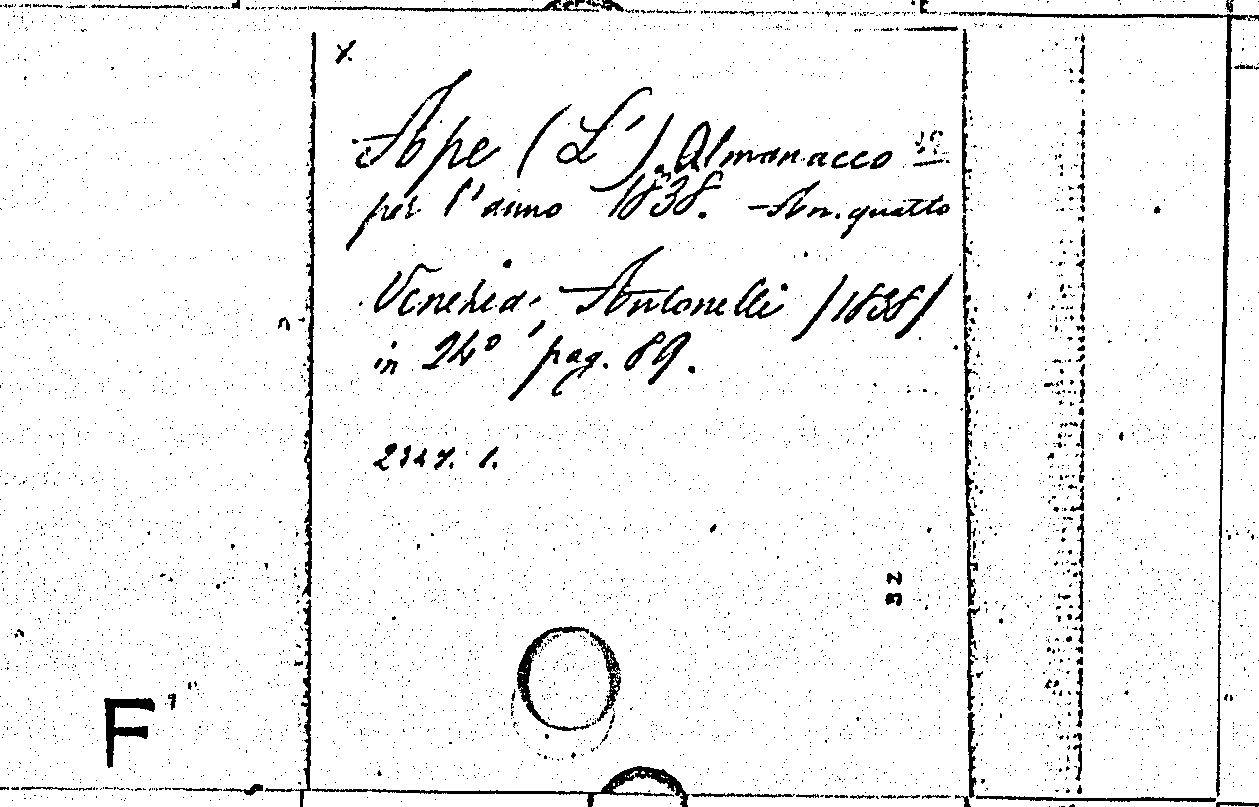 x
Ape (L'). Almanacco
per l'anno 1838. - An. quatto
Venezia, Antonelli /1838/
in 24°, pag. 89.
2347. 1.
32
F